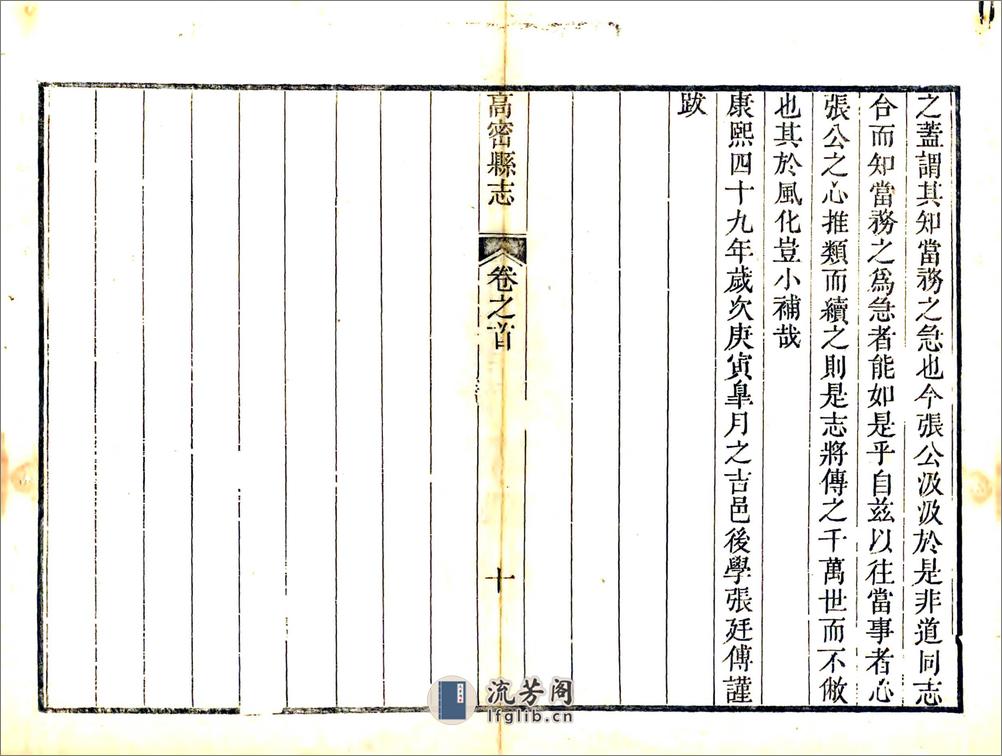 之蓋謂其知當務之急也今張公汲汲於是非道同志
合而知當務之爲急者能如是乎自兹以往當事者心
張公之心推類而續之則是志將傳之千萬世而不敝
也其於風化豈小補哉
康熙四十九年歲次庚寅臯月之吉邑後學張廷傳謹
跋
高密縣志 卷之首 十
流芳阁
lfglib.cn